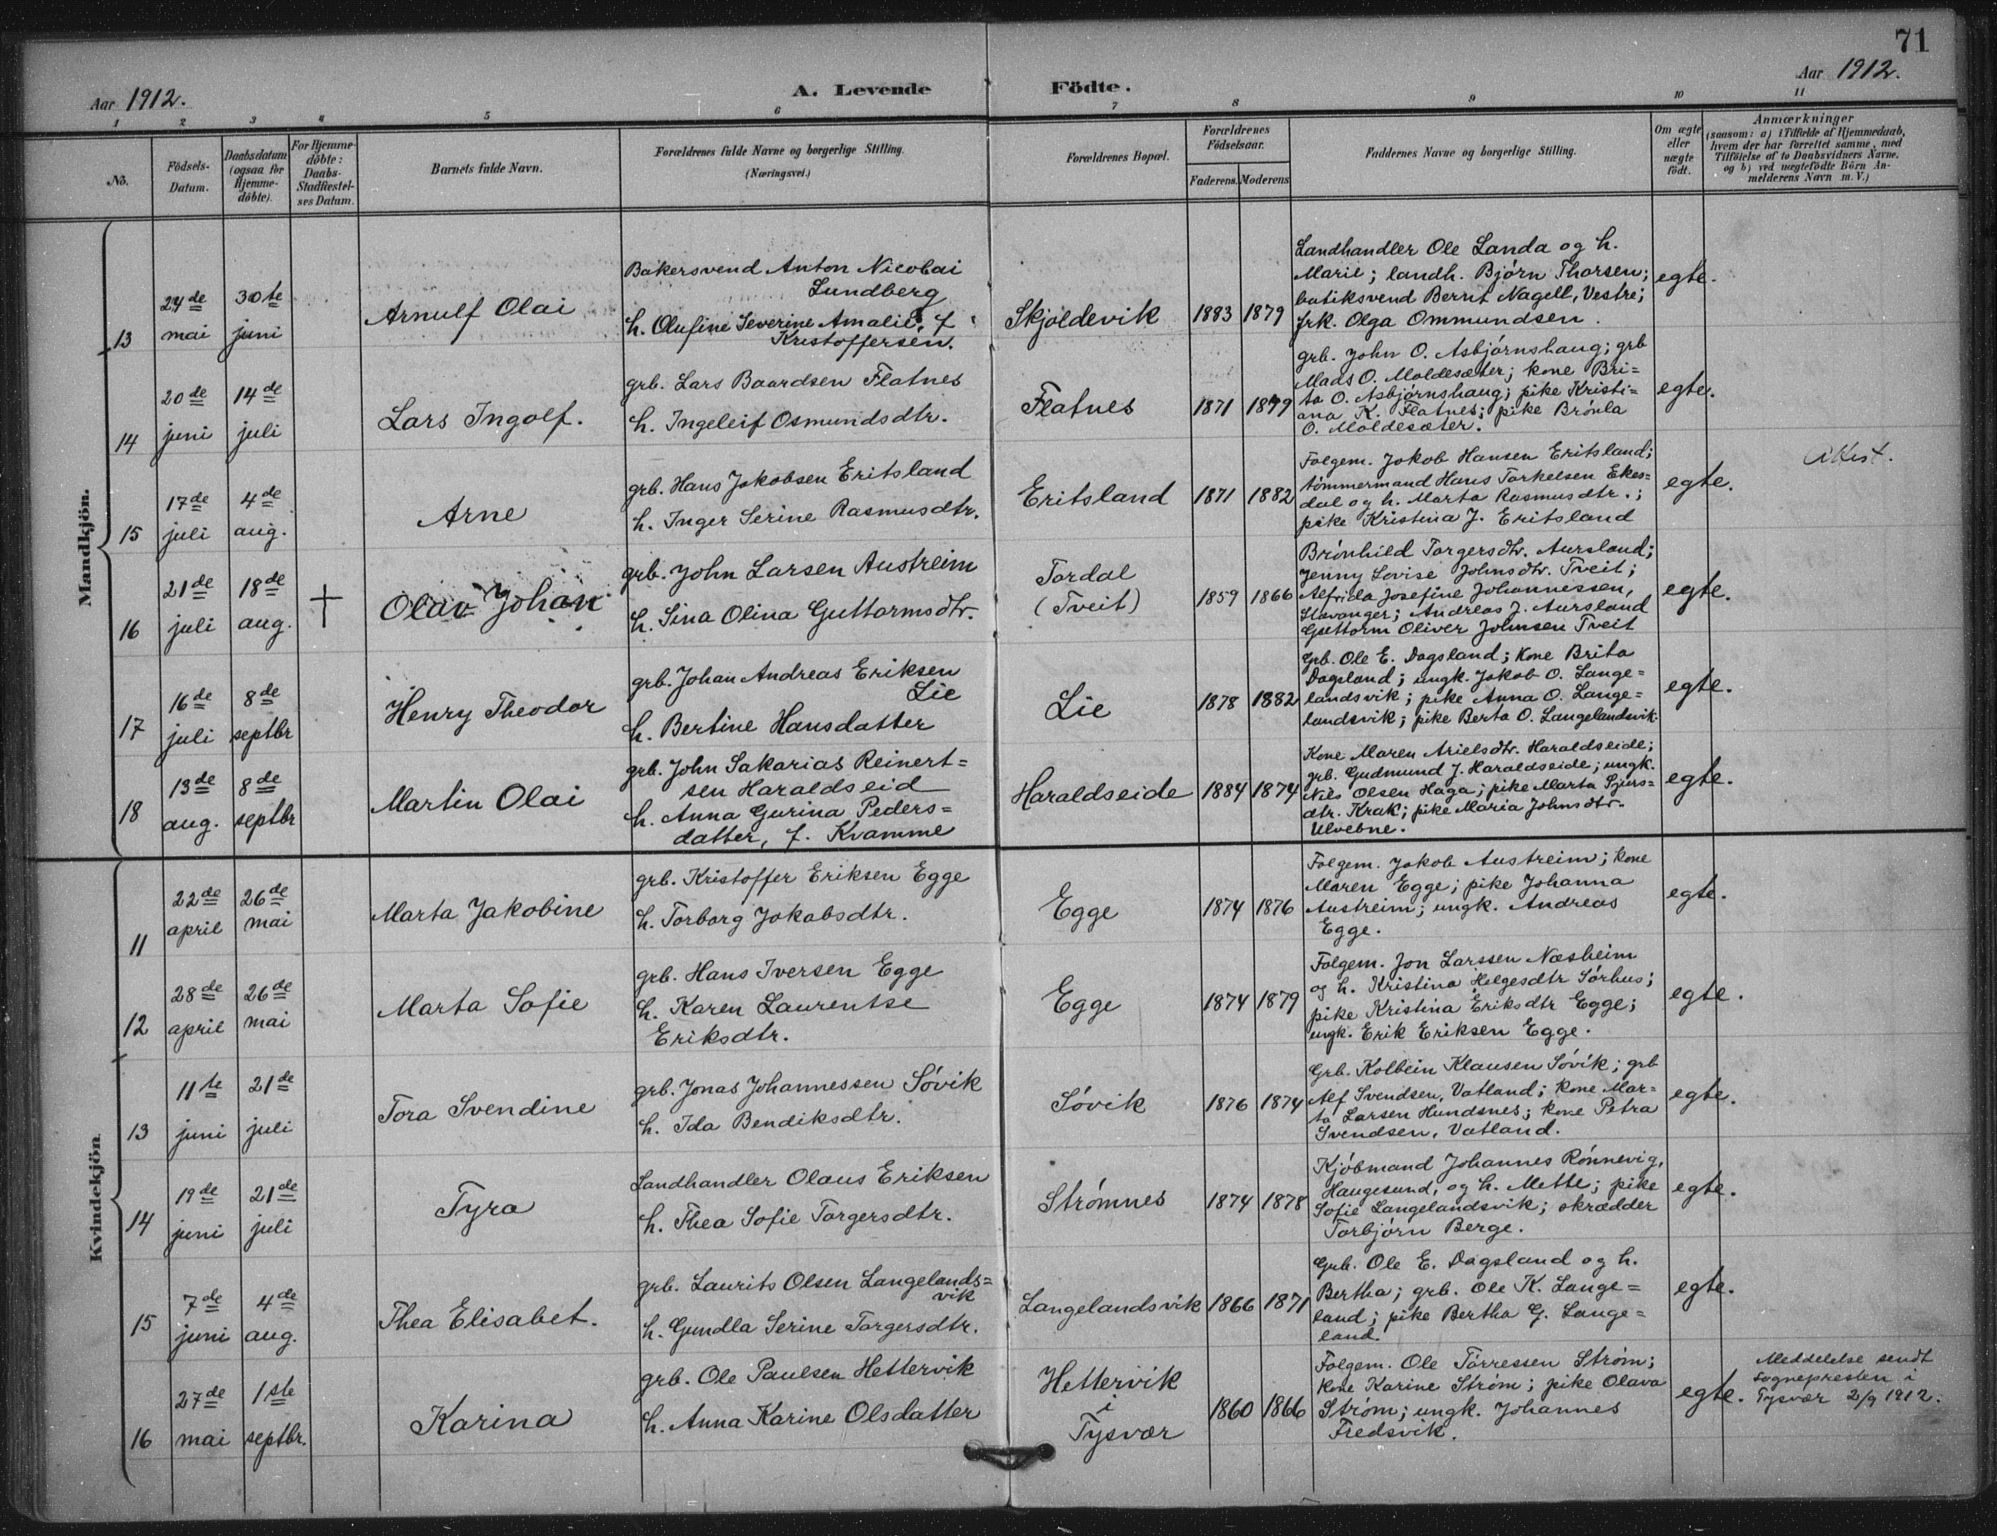 71
Aar 1912.
A. Levende Födte.
Aar 1912.
1 2 3 4 5 6 7 8 9 10 11
No.
Födsels-
Datum.
Daabsdatum
(ogsaa for
Hjemme-
döbte).
For Hjemme-
döbte:
Daabs-
Stadfæstel-
ses Datum.
Barnets fulde Navn.
Forældrenes fulde Navne og borgerlige Stilling.
(Næringsvei.)
Forældrenes Bopæl.
Forældrenes
Födselsaar.
Faderens. Moderens
Faddernes Navne og borgerlige Stilling.
Om ægte
eller
uægte
födt.
Anmærkninger
(saasom: a) i Tilfælde af Hjemmedaab,
hvem der har forrettet samme, med
Tilföielse af to Daabsvidners Navne,
og b) ved uægtefödte Börn An-
melderens Navn m. V.)
Mandkjön.
13
24de
mai
30te
juni
Arnulf Olai
Bakersvend Anton Nicolai
Lundberg
h. Olufine Severine Amalie, f.
Kristoffersen.
Skjoldevik
1883 1879
Landhandler Ole Landa og h.
Marie; landh. Bjørn Thorsen;
butiksvend Bernt Nagell, Vestre;
frk. Olga Ommundsen.
egte.
14
20de
juni
14de
juli
Lars Ingolf.
grb. Lars Baardsen Flatnes
h. Ingeleif Osmundsdtr.
Flatnes
1871 1879
grb. John O. Asbjørnshaug; grb
Mads O. Moldesæter; kone Bri=
ta O. Asbjørnshaug; pike Kristi=
ana K. Flatnes; pike Brønla
O. Moldesæter.
egte.
15
17de
juli
4de
aug.
Arne
grb. Hans Jakobsen Eritsland
h. Inger Serine Rasmusdtr.
Eritsland
1871 1882
Folgem. Jakob Hansen Eritsland;
tømmermand Hans Torkelsen Ekes=
dal og h. Marta Rasmusdtr.;
pike Kristina J. Eritsland
egte.
16
21de
juli
18de
aug.
†
Olav Johan
grb. John Larsen Austreim
h. Sina Olina Guttormsdtr.
Tordal
(Tveit)
1859 1866
Brønhild Torgersdtr. Aursland;
Jenny Lovise Johnsdtr. Tveit;
Alfrida Josefine Johannessen,
Stavanger; Andreas J. Aursland
Guttorm Oliver Johnsen Tveit
egte.
17
16de
juli
8de
septbr
Henry Theodor
grb. Johan Andreas Eriksen
Lie
h. Bertine Hansdatter
Lie
1878 1882
Grb. Ole E. Dagsland; kone Brita
Dagsland; ungk. Jakob O. Lange=
landsvik; pike Anna O. Lange=
landsvik; pike Berta O. Langelandsvik.
egte.
18
13de
aug.
8de
septbr
Martin Olai
grb. John Sakarias Reinert=
sen Haraldseid
h. Anna Gurina Peders=
datter, f. Kvamme
Haraldseide
1884 1874
Kone Maren Arielsdtr. Haraldseide;
grb. Gudmund J. Haraldseide; ungk.
Nils Olsen Haga; pike Marta Sjurs=
dtr. Krak; pike Maria Johnsdtr.
Ulvebne.
egte.
Kvindekjön.
11
22de
april
26de
mai
Marta Jakobine
grb. Kristoffer Eriksen Egge
h. Torborg Jakobsdtr.
Egge
1874 1876
Folgem. Jakob Austreim; kone
Maren Egge; pike Johanna
Austreim; ungk. Andreas
Egge.
egte.
12
28de
april
26de
mai
Marta Sofie
grb. Hans Iversen Egge
h. Karen Laurentse
Eriksdtr.
Egge
1874 1879
Folgem. Jon Larssen Næsheim
og h. Kristina Helgesdtr Sørhus;
pike Kristina Eriksdtr Egge;
ungk. Erik Eriksen Egge.
egte.
13
11te
juni
21de
juli
Tora Svendine
grb. Jonas Johannessen Søvik
h. Ida Bendiksdtr.
Søvik
1876 1874
Grb. Kolbein Klausen Søvik; grb
Alf Svendsen, Vatland; kone Mar=
ta Larsen Hundsnes; kone Petra
Svendsen, Vatland.
egte.
14
19de
juni
21de
juli
Tyra
Landhandler Olaus Eriksen
h. Thea Sofie Torgersdtr.
Strømnes
1874 1878
Kjøbmand Johannes Rønnevig,
Haugesund, og h. Mette; pike
Sofie Langelandsvik; skrædder
Torbjørn Berge.
egte.
15
7de
juni
4de
aug.
Thea Elisabet.
grb. Laurits Olsen Langelands=
vik
h. Gundla Serine Torgersdtr.
Langelandsvik
1866 1871
Grb. Ole E. Dagsland og h.
Bertha; grb. Ole K. Lange=
land; pike Bertha G. Lange=
land.
egte.
16
27de
mai
1ste
septbr.
Karina
grb. Ole Paulsen Hettervik
h. Anna Karine Olsdatter
Hettervik
i
Tysvær
1860 1866
Folgem. Ole Tørressen Strøm;
kone Karine Strøm; pike Olava
Strøm; ungk. Johannes
Fredsvik.
egte.
Meddelelse sendt
sognepresten i
Tysvær 2/9 1912.